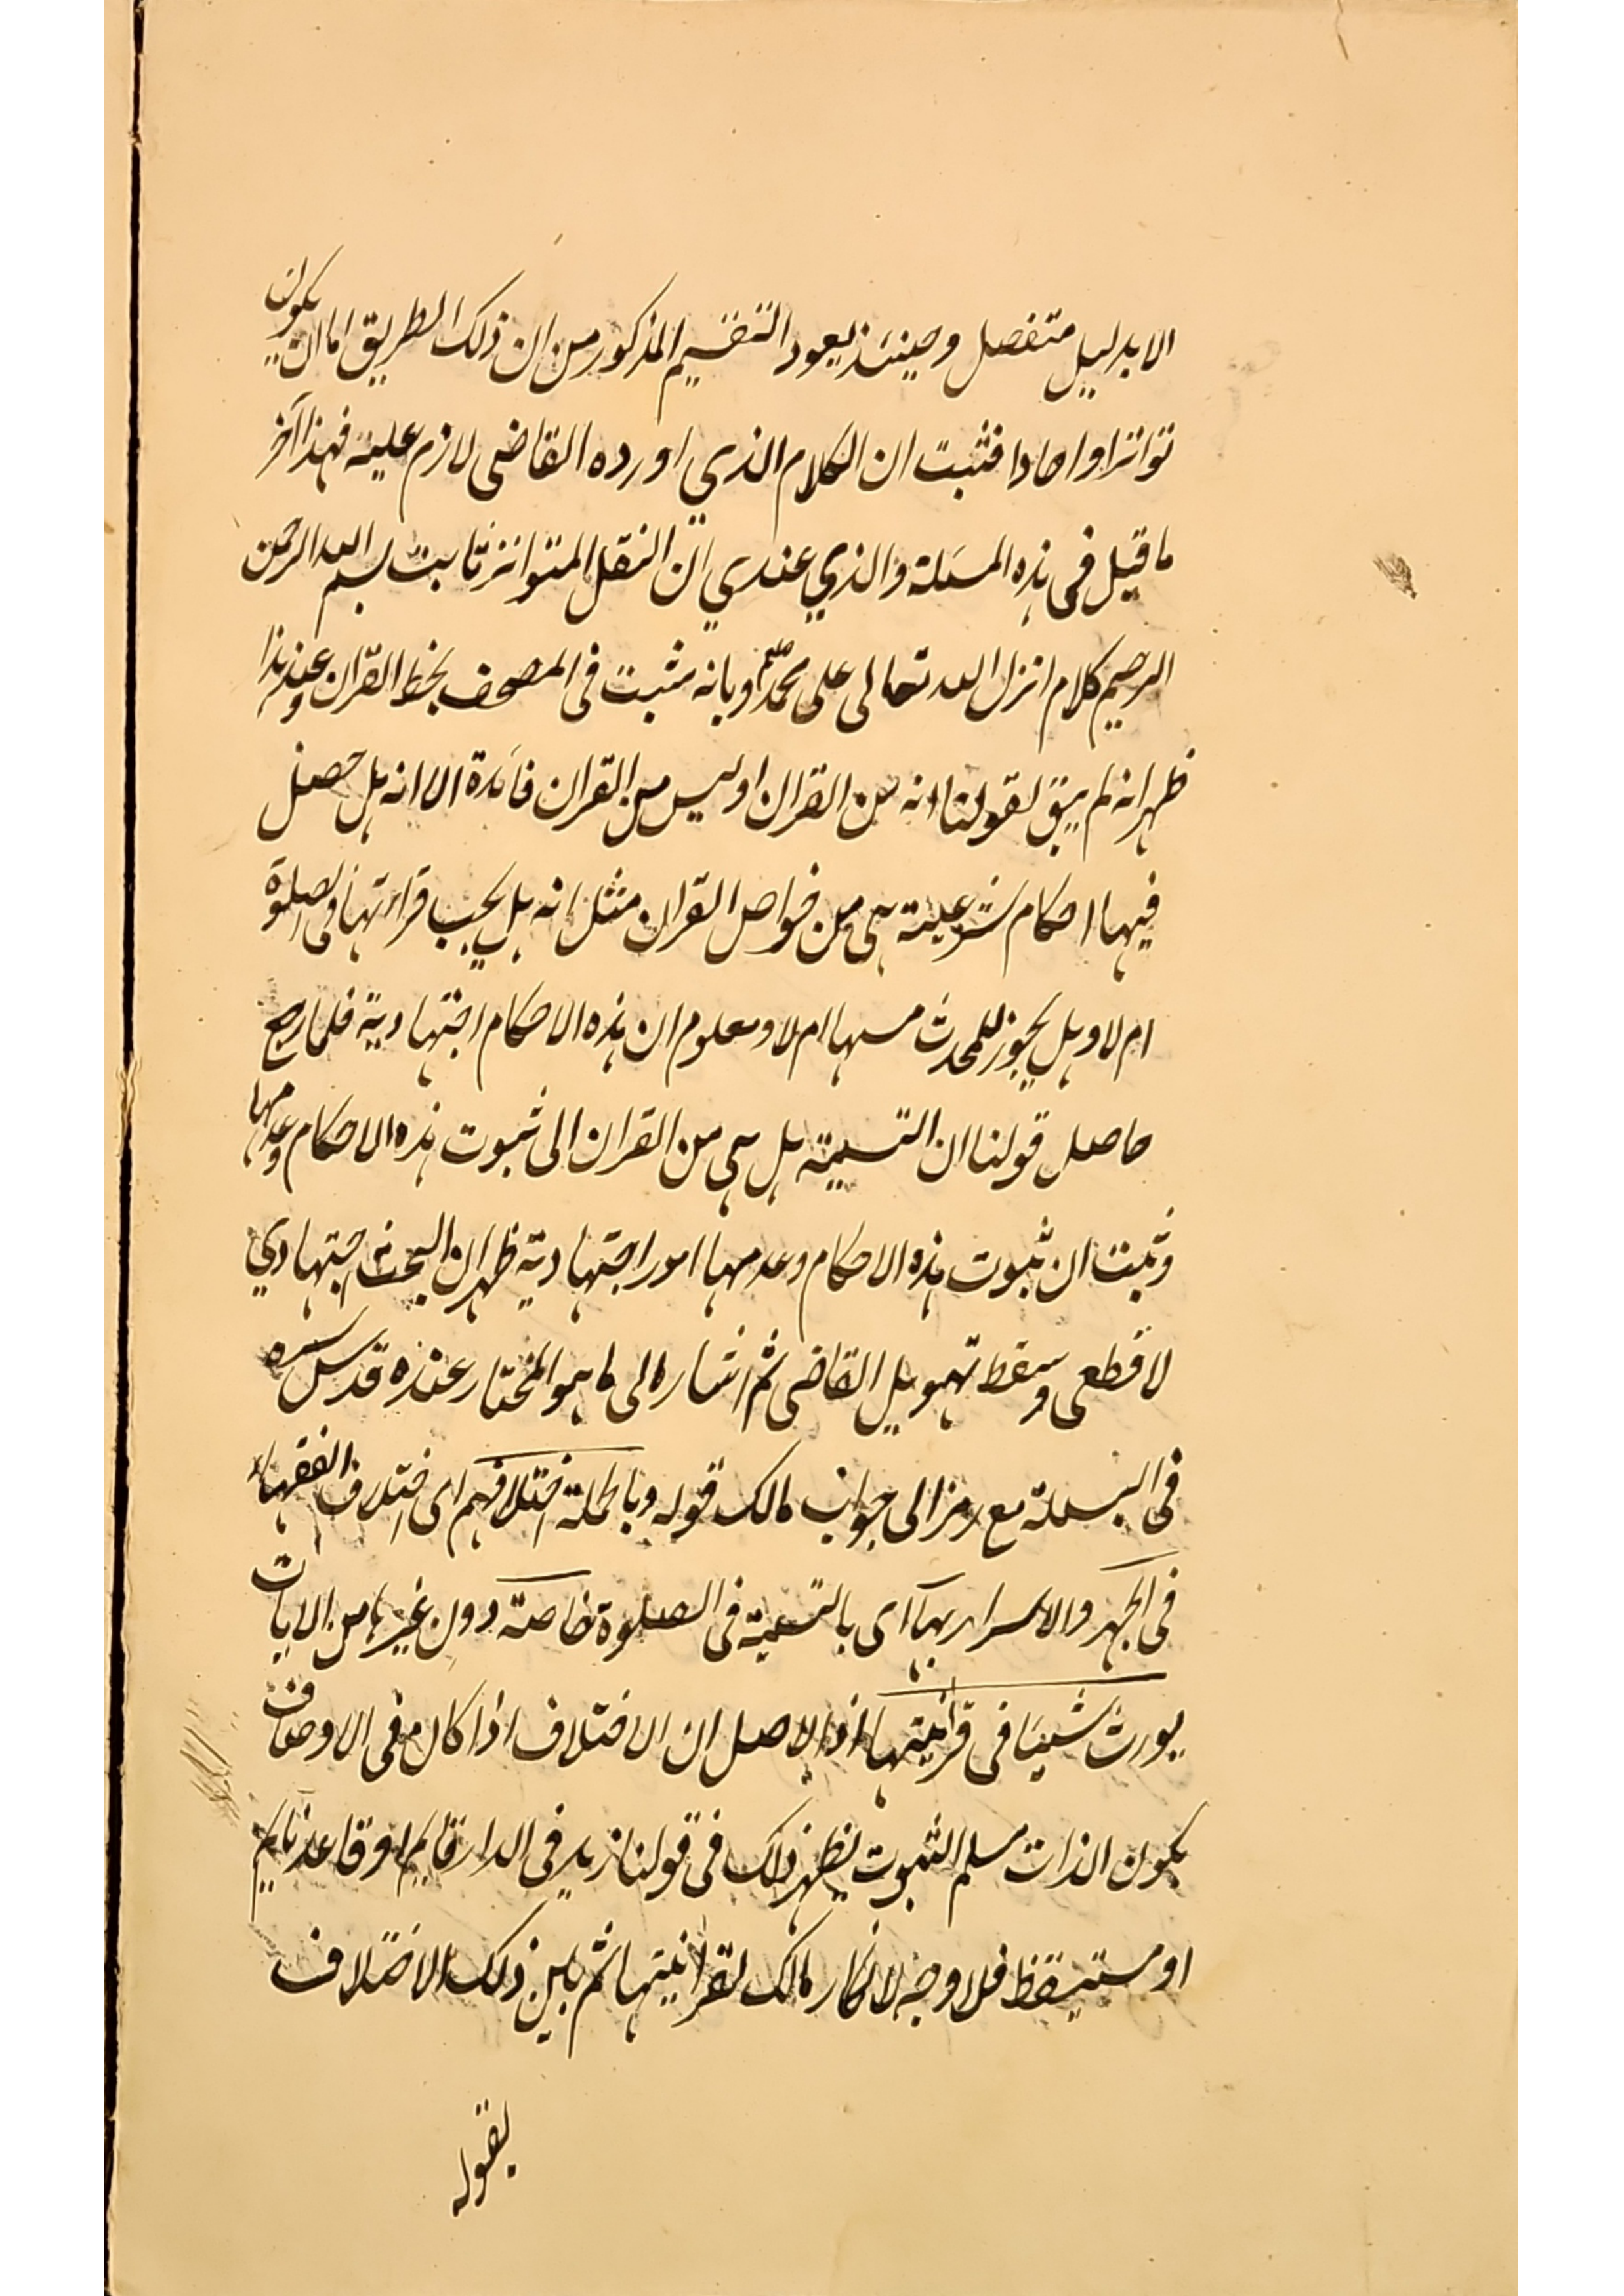 الا بدليل متفصل وحينئذ يعود التقسيم المذكور من ان ذلك الطريق اما ان يكون
تواترا او احادا فثبت ان الكلام الذي اورده القاضى لازم عليه فهذا آخر
ما قيل فى هذه المسئلة والذي عندي ان النقل المتواتر ثابت بسم الله الرحمن
الرحيم كلام انزل الله تعالى على محمد صلعم وبانه مثبت فى المصحف بخط القران وعند هذا
ظهر انه لم يبق لقولنا انه من القران او ليس من القران فائدة الا انه هل حصل
فيها احكام شرعية هى من خواص القران مثل انه هل يجب قراءتها فى الصلوة
ام لا وهل يجوز للمحدث مسها ام لا ومعلوم ان هذه الاحكام اجتهادية فلما رجع
حاصل قولنا ان التسمية هل هى من القران الى ثبوت هذه الاحكام وعدمها
وثبت ان ثبوت هذه الاحكام وعدمها امور اجتهادية ظهر ان البحث اجتهادي
لا قطعى وسقط تهويل القاضى ثم اشار الى ما هو المختار عنده قدس سره
فى البسملة مع رمز الى جواب مالك قوله وبالجملة اختلافهم اى اختلاف الفقهاء
فى الجهر والاسرار بها اى بالتسمية فى الصلوة خاصة دون غيرها من الايات
يورث شيئا فى قرانيتها اذ الاصل ان الاختلاف اذا كان فى الاوصاف
يكون الذات مسلم الثبوت يظهر ذلك فى قولنا زيد فى الدار قايم او قاعد نايم
او مستيقظ فلا وجه لانكار مالك لقرانيتها ثم بين ذلك الاختلاف
بقوله